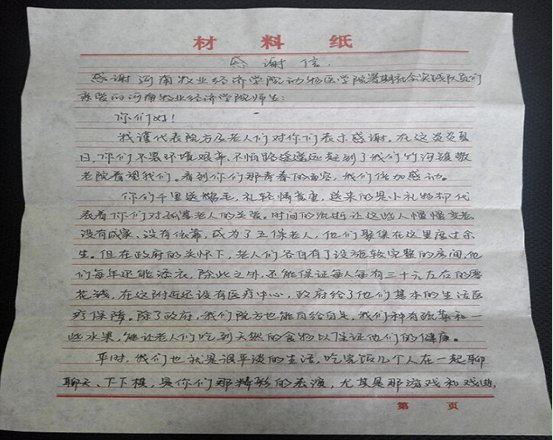 材料纸
感谢信
感谢河南牧业经济学院动物医学院暑期社会实践队
亲爱的河南牧业经济学院师生：
你们好！
我谨代表院方及老人们对你们表示感谢。在这炎炎夏
日，你们不畏环境艰辛，不怕路途遥远赶到了我们竹沟镇敬
老院看望我们。看到你们那青春的面容，我们倍加感动。
你们千里送鹅毛，礼轻情意重，送来的是小礼物却代
表着你们对孤寡老人的关爱。时间的流逝让这些人慢慢变老
没有成家，没有依靠，成为了五保老人，他们聚集在这里度过余
生。但在政府的关怀下，老人们各自有了设施较完整的房间，他
们每年还能添衣，除此之外，还能保证每人每月三十六左右的零
花钱，在这附近还设有医疗中心，政府给了他们基本的生活医
疗保障。除了政府，我们院方也能自给自足，我们种有蔬菜和一
些水果，能让老人们吃到天然的食物以保证他们的健康。
平时，我们也就是很平淡的生活，吃完饭几个人在一起聊
聊天、下下棋，是你们那精彩的表演，尤其是那游戏和戏曲，
第 页